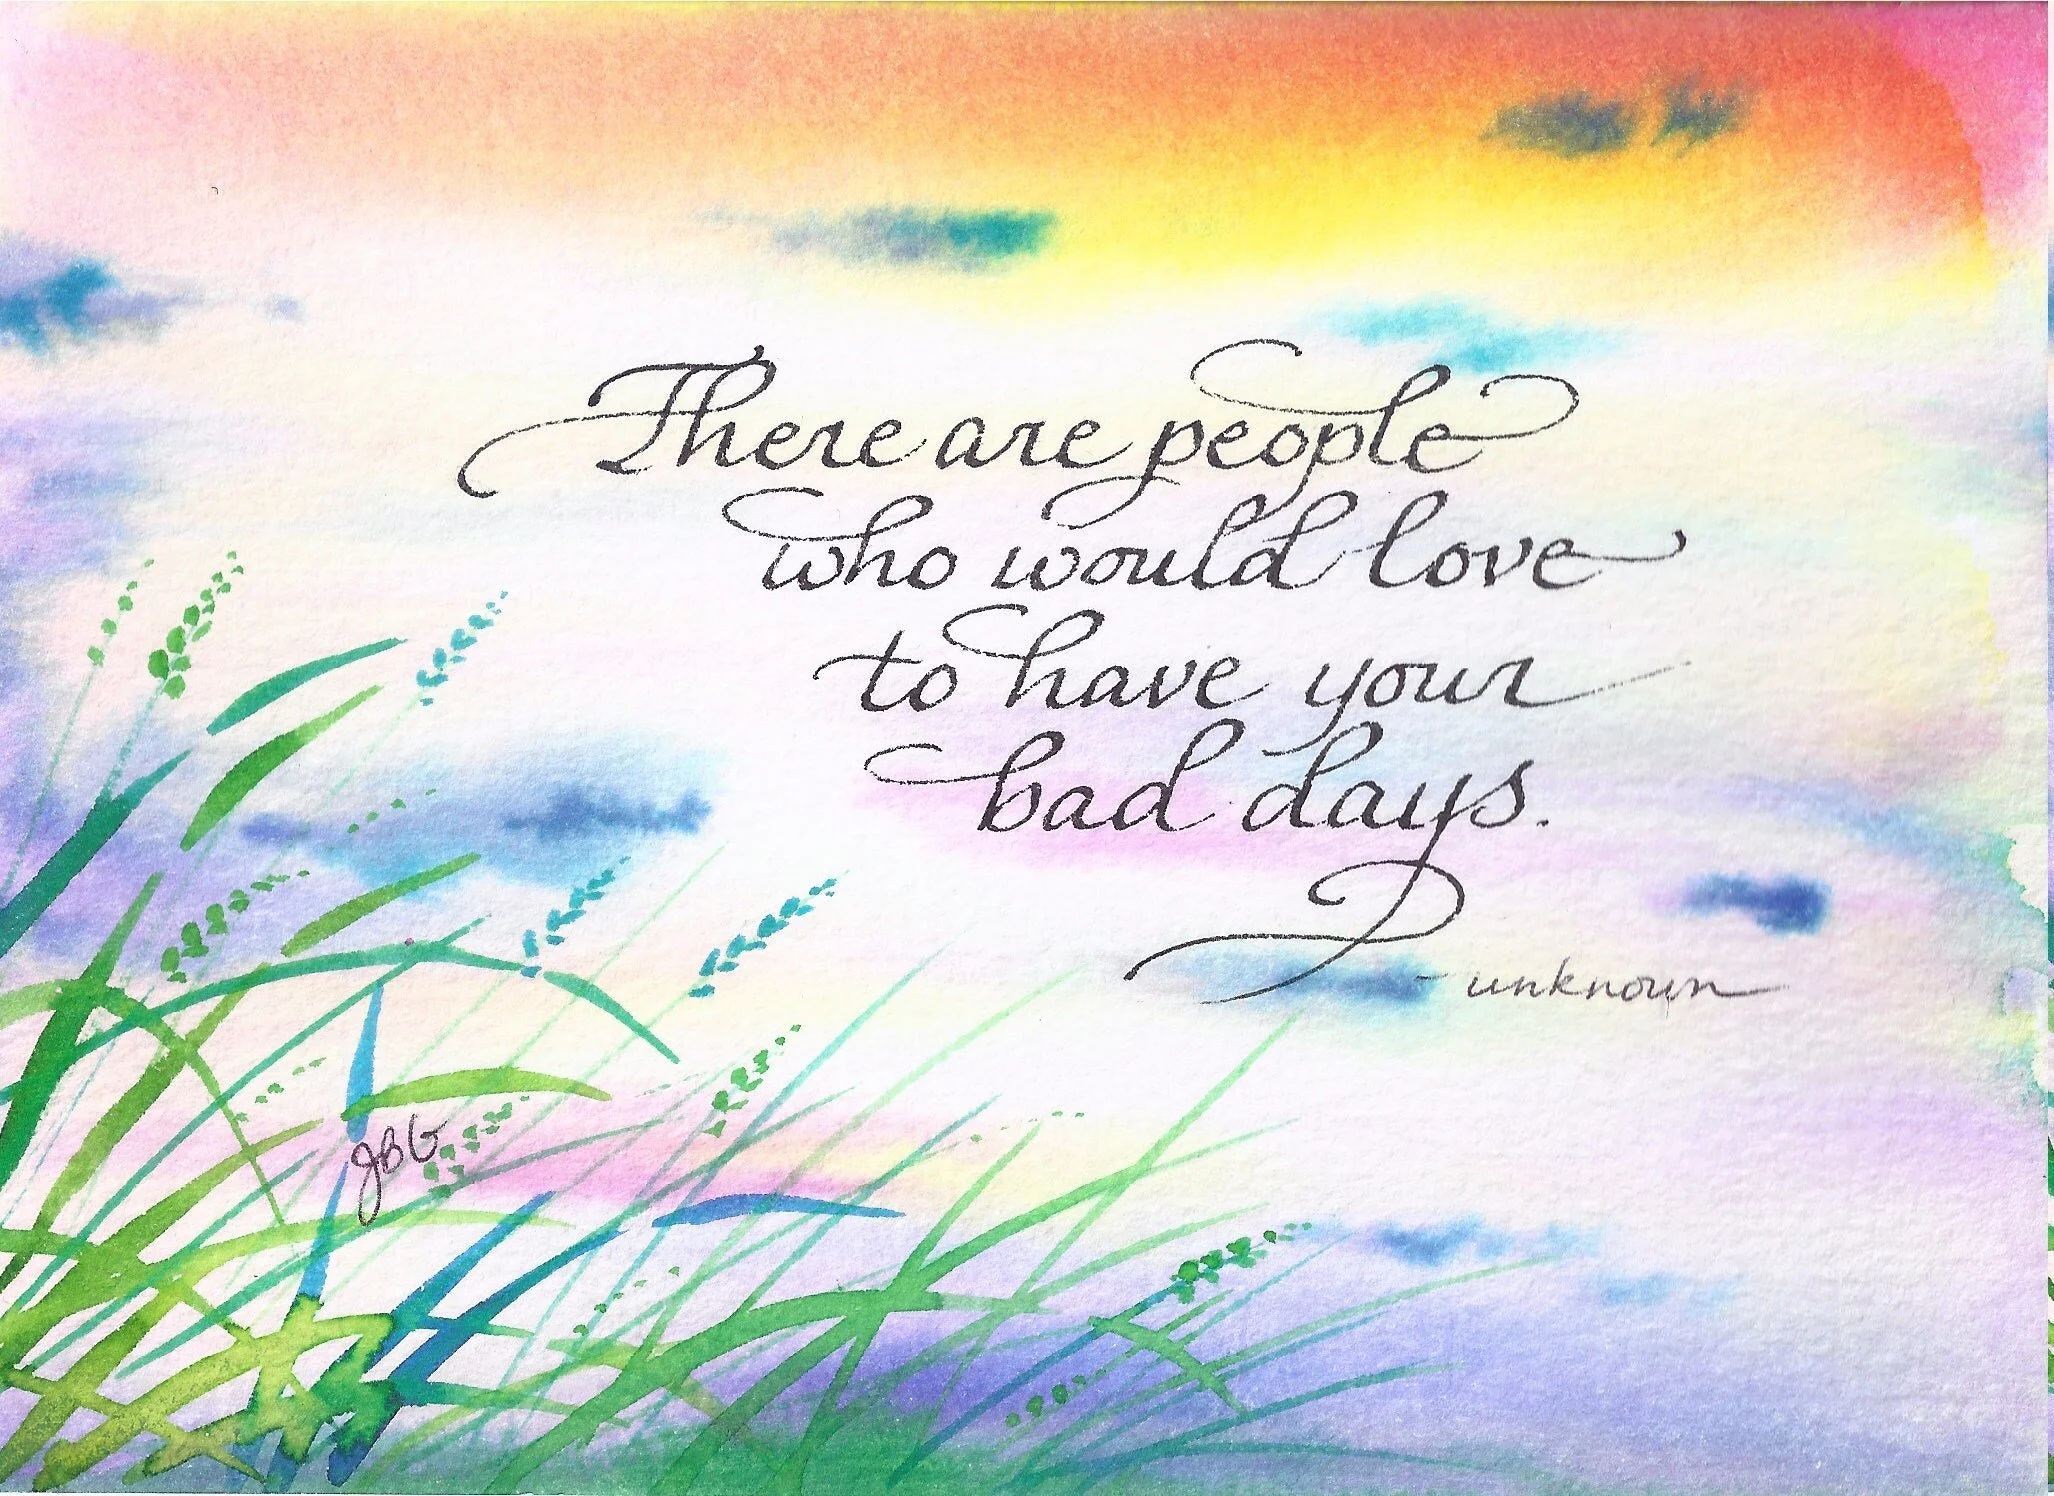 There are people
who would love
to have your
bad days.
- unknown
JBG